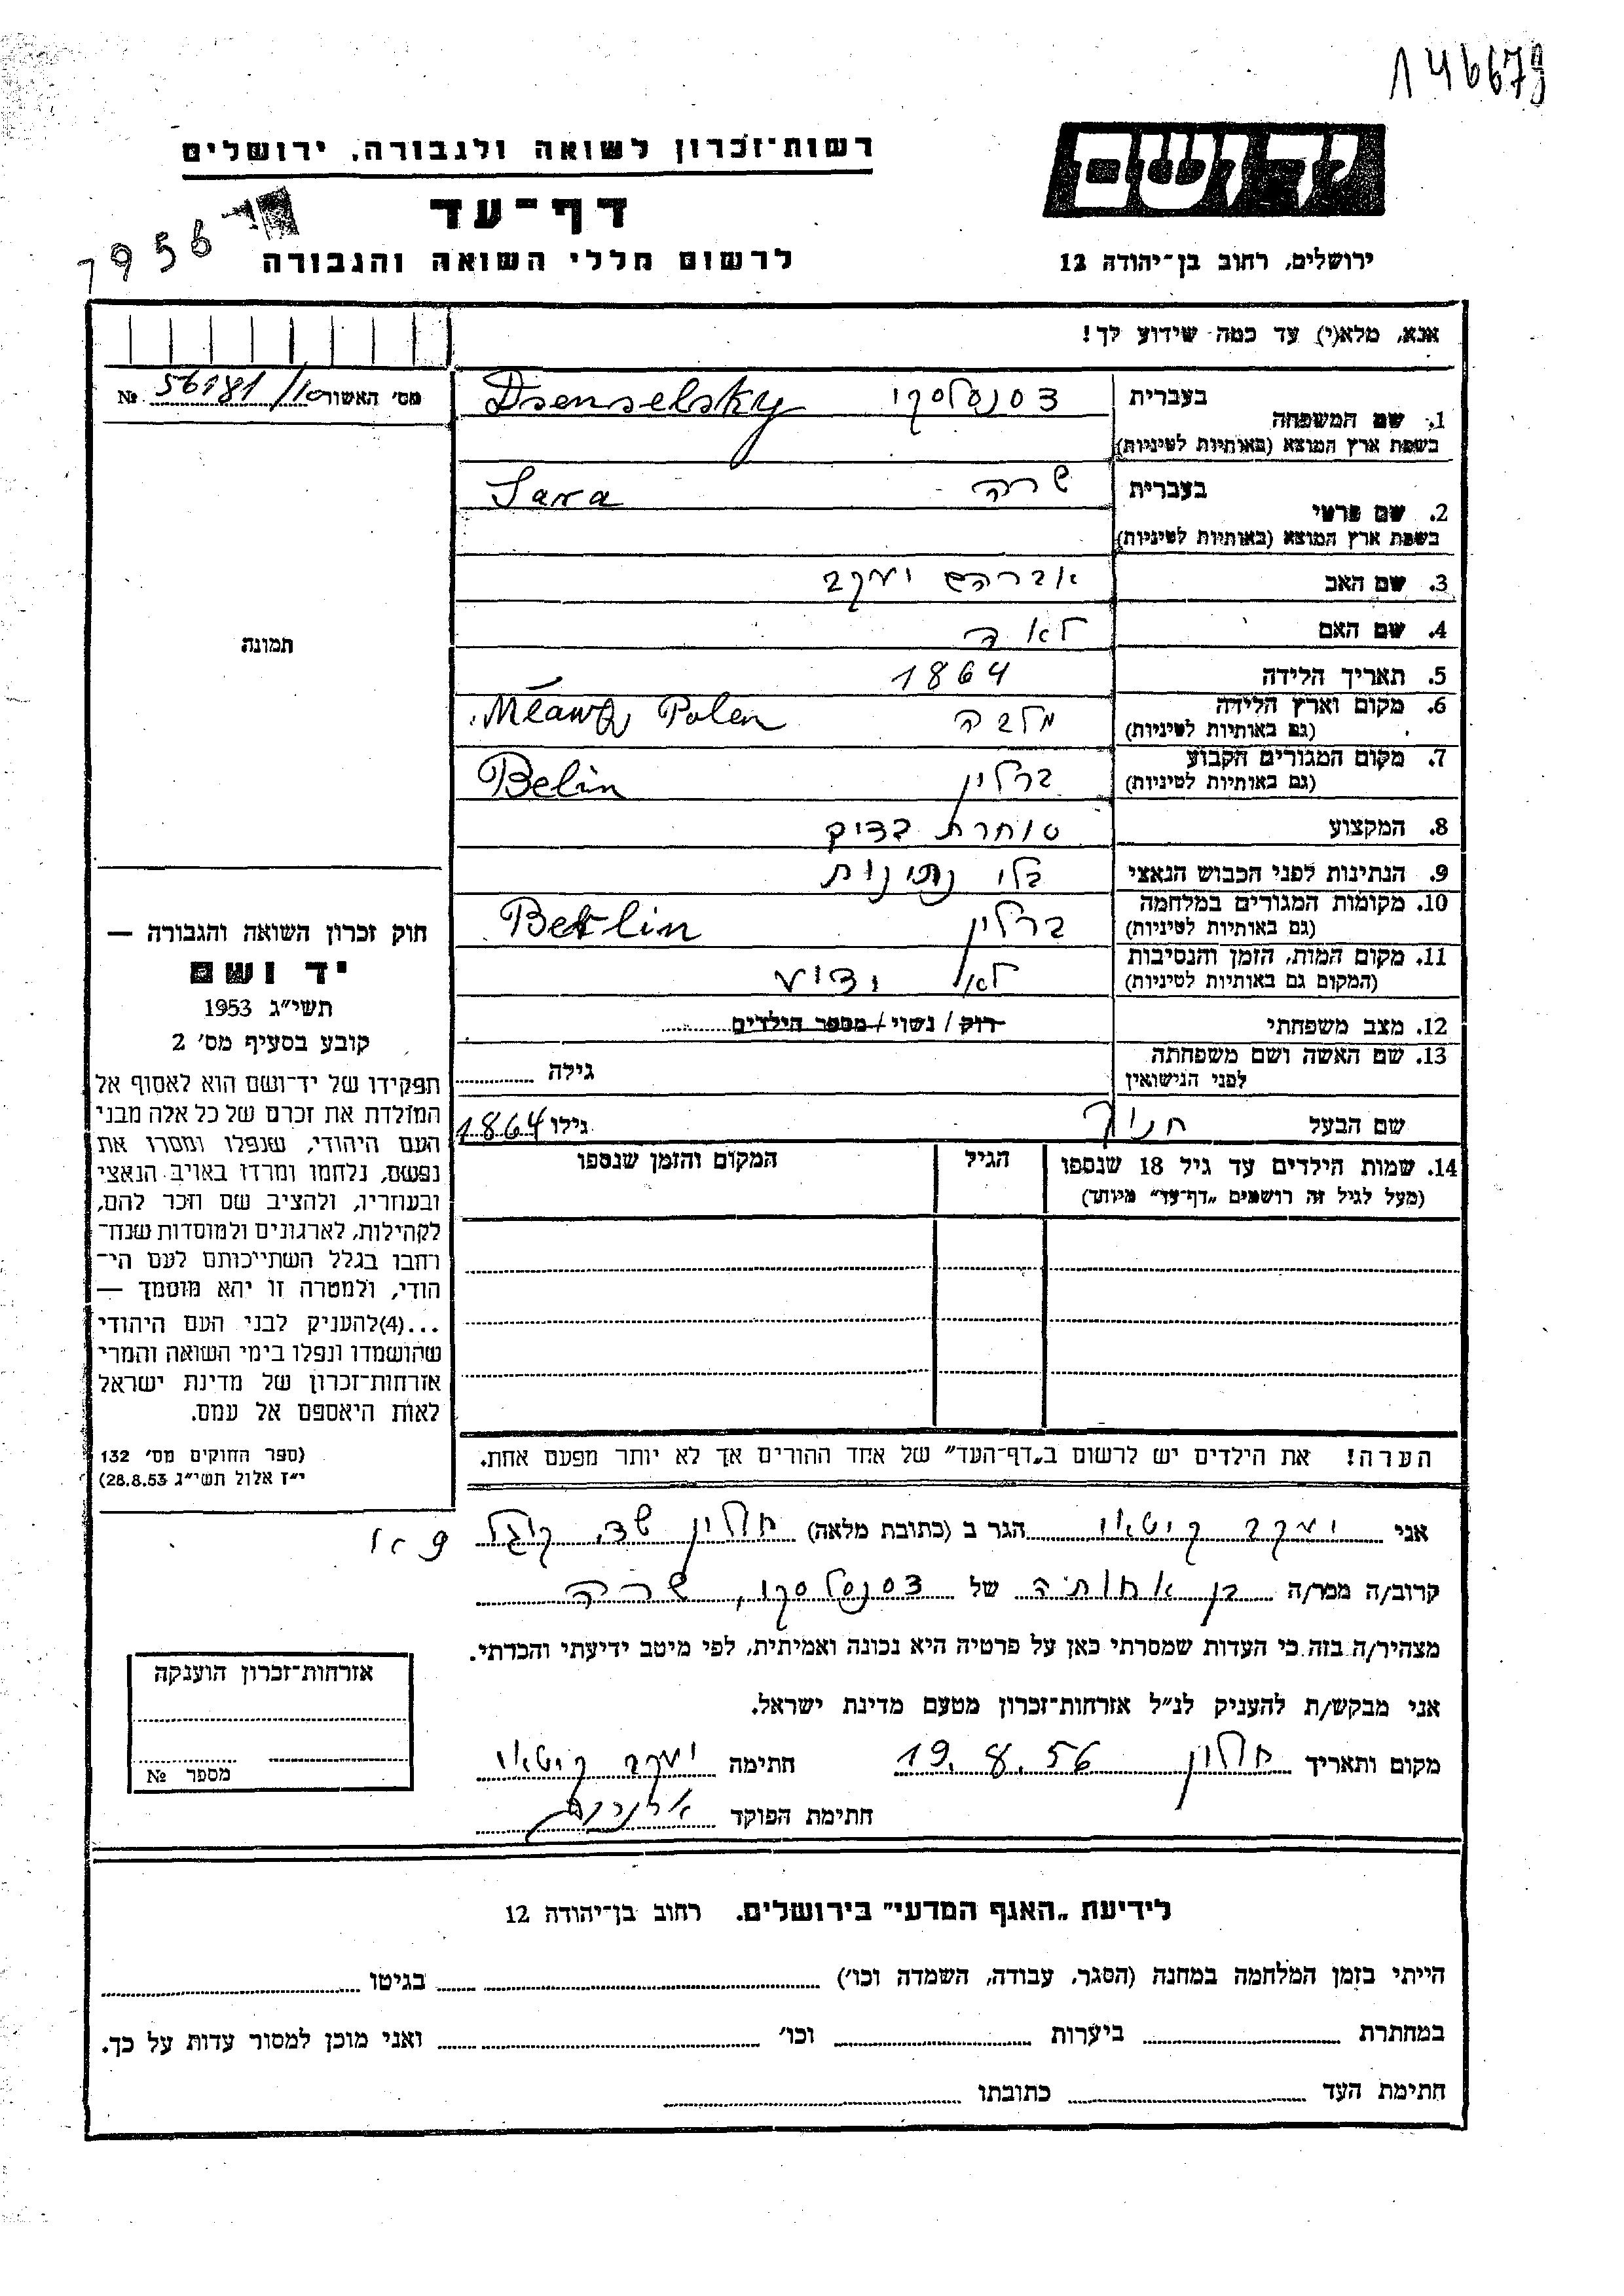 146679
רשות־זכרון לשואה ולגבורה, ירושלים
יד ושם
דף־עד
1956
לרשום חללי השואה והגבורה
ירושלים, רחוב בן־יהודה 12
אנא, מלא(י) עד כמה שידוע לך!
מס׳ האשור 56181/10 №
בעברית
1. שם המשפחה
בשפת ארץ המוצא (באותיות לטיניות)
דסנסלסקי Dsenselsky
בעברית
2. שם פרטי
בשפת ארץ המוצא (באותיות לטיניות)
שרה Sara
3. שם האב אברהם יעקב
4. שם האם לאה
5. תאריך הלידה 1864
6. מקום וארץ הלידה
(גם באותיות לטיניות)
מלבה Mlawa, Polen
7. מקום המגורים הקבוע
(גם באותיות לטיניות)
ברלין Belin
8. המקצוע סוחרת בדים
9. הנתינות לפני הכבוש הנאצי בלי נתינות
10. מקומות המגורים במלחמה
(גם באותיות לטיניות)
ברלין Berlin
11. מקום המות, הזמן והנסיבות
(המקום גם באותיות לטיניות)
לא ידוע
12. מצב משפחתי רוק / נשוי / מספר הילדים
13. שם האשה ושם משפחתה
לפני הנישואין
גילה
שם הבעל חנוך גילו 1864
14. שמות הילדים עד גיל 18 שנספו
(מעל לגיל זה רושמים „דף־עד״ מיוחד)
הגיל
המקום והזמן שנספו
הערה! את הילדים יש לרשום ב„דף־העד״ של אחד ההורים אך לא יותר מפעם אחת.
תמונה
חוק זכרון השואה והגבורה —
יד ושם
תשי״ג 1953
קובע בסעיף מס׳ 2
תפקידו של יד־ושם הוא לאסוף אל
המולדת את זכרם של כל אלה מבני
העם היהודי, שנפלו ומסרו את
נפשם, נלחמו ומרדו באויב הנאצי
ובעוזריו, ולהציב שם וזכר להם,
לקהילות, לארגונים ולמוסדות שנח־
רחבו בגלל השתייכותם לעם הי־
הודי, ולמטרה זו יהא מוסמך —
...(4)להעניק לבני העם היהודי
שהושמדו ונפלו בימי השואה והמרי
אזרחות־זכרון של מדינת ישראל
לאות היאספם אל עמם.
(ספר החוקים מס׳ 132
י״ז אלול תשי״ג 28.8.53)
אני יעקב קיטאי הגר ב (כתובת מלאה) חולון שד. קוגל
קרוב/ה מכר/ה בן אחותיה של דסנסלסקי, שרה
מצהיר/ה בזה כי העדות שמסרתי כאן על פרטיה היא נכונה ואמיתית, לפי מיטב ידיעתי והכרתי.
אני מבקש/ת להעניק לנ״ל אזרחות־זכרון מטעם מדינת ישראל.
מקום ותאריך חולון 19.8.56 חתימה יעקב קיטאי
חתימת הפוקד
אזרחות־זכרון הוענקה
מספר №
לידיעת „האגף המדעי״ בירושלים. רחוב בן־יהודה 12
הייתי בזמן המלחמה במחנה (הסגר, עבודה, השמדה וכו׳) בגיטו
במחתרת ביערות וכו׳ ואני מוכן למסור עדות על כך.
חתימת העד כתובתו